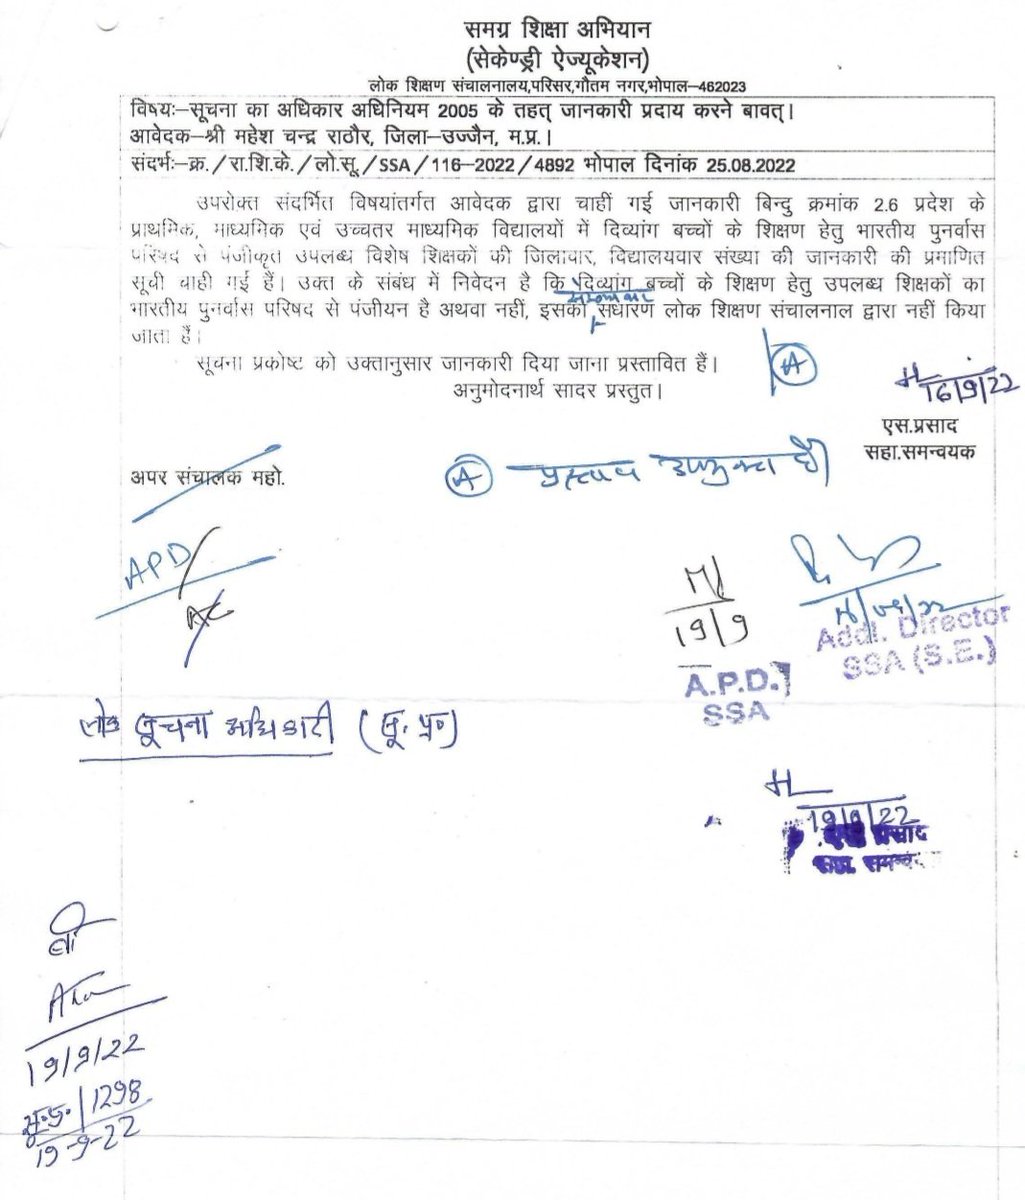 समग्र शिक्षा अभियान
(सेकेण्ड्री ऐज्यूकेशन)
लोक शिक्षण संचालनालय,परिसर,गौतम नगर,भोपाल–462023
विषयः–सूचना का अधिकार अधिनियम 2005 के तहत् जानकारी प्रदाय करने बावत्।
आवेदक–श्री महेश चन्द्र राठौर, जिला–उज्जैन, म.प्र.।
संदर्भः–क्र./रा.शि.के./लो.सू./SSA/116–2022/4892 भोपाल दिनांक 25.08.2022
उपरोक्त संदर्भित विषयांतर्गत आवेदक द्वारा चाहीं गई जानकारी बिन्दु क्रमांक 2.6 प्रदेश के
प्राथमिक, माध्यमिक एवं उच्चतर माध्यमिक विद्यालयों में दिव्यांग बच्चों के शिक्षण हेतु भारतीय पुनर्वास
परिषद से पंजीकृत उपलब्ध विशेष शिक्षकों की जिलावार, विद्यालयवार संख्या की जानकारी की प्रमाणित
सूची चाही गई हैं। उक्त के संबंध में निवेदन है कि दिव्यांग बच्चों के शिक्षण हेतु उपलब्ध शिक्षकों का
भारतीय पुनर्वास परिषद से पंजीयन है अथवा नहीं, इसका संधारण लोक शिक्षण संचालनाल द्वारा नहीं किया
जाता हैं।
सूचना प्रकोष्ट को उक्तानुसार जानकारी दिया जाना प्रस्तावित हैं।
अनुमोदनार्थ सादर प्रस्तुत।
A
16/9/22
एस.प्रसाद
सहा.समन्वयक
अपर संचालक महो.
A प्रस्ताव उपयुक्त है।
APD
19/9
Addl. Director
SSA (S.E.)
A.P.D.
SSA
लोक सूचना अधिकारी (सू. प्र०)
19/9/22
प्रसाद
सहा. समन्वयक
19/9/22
1298
19-9-22